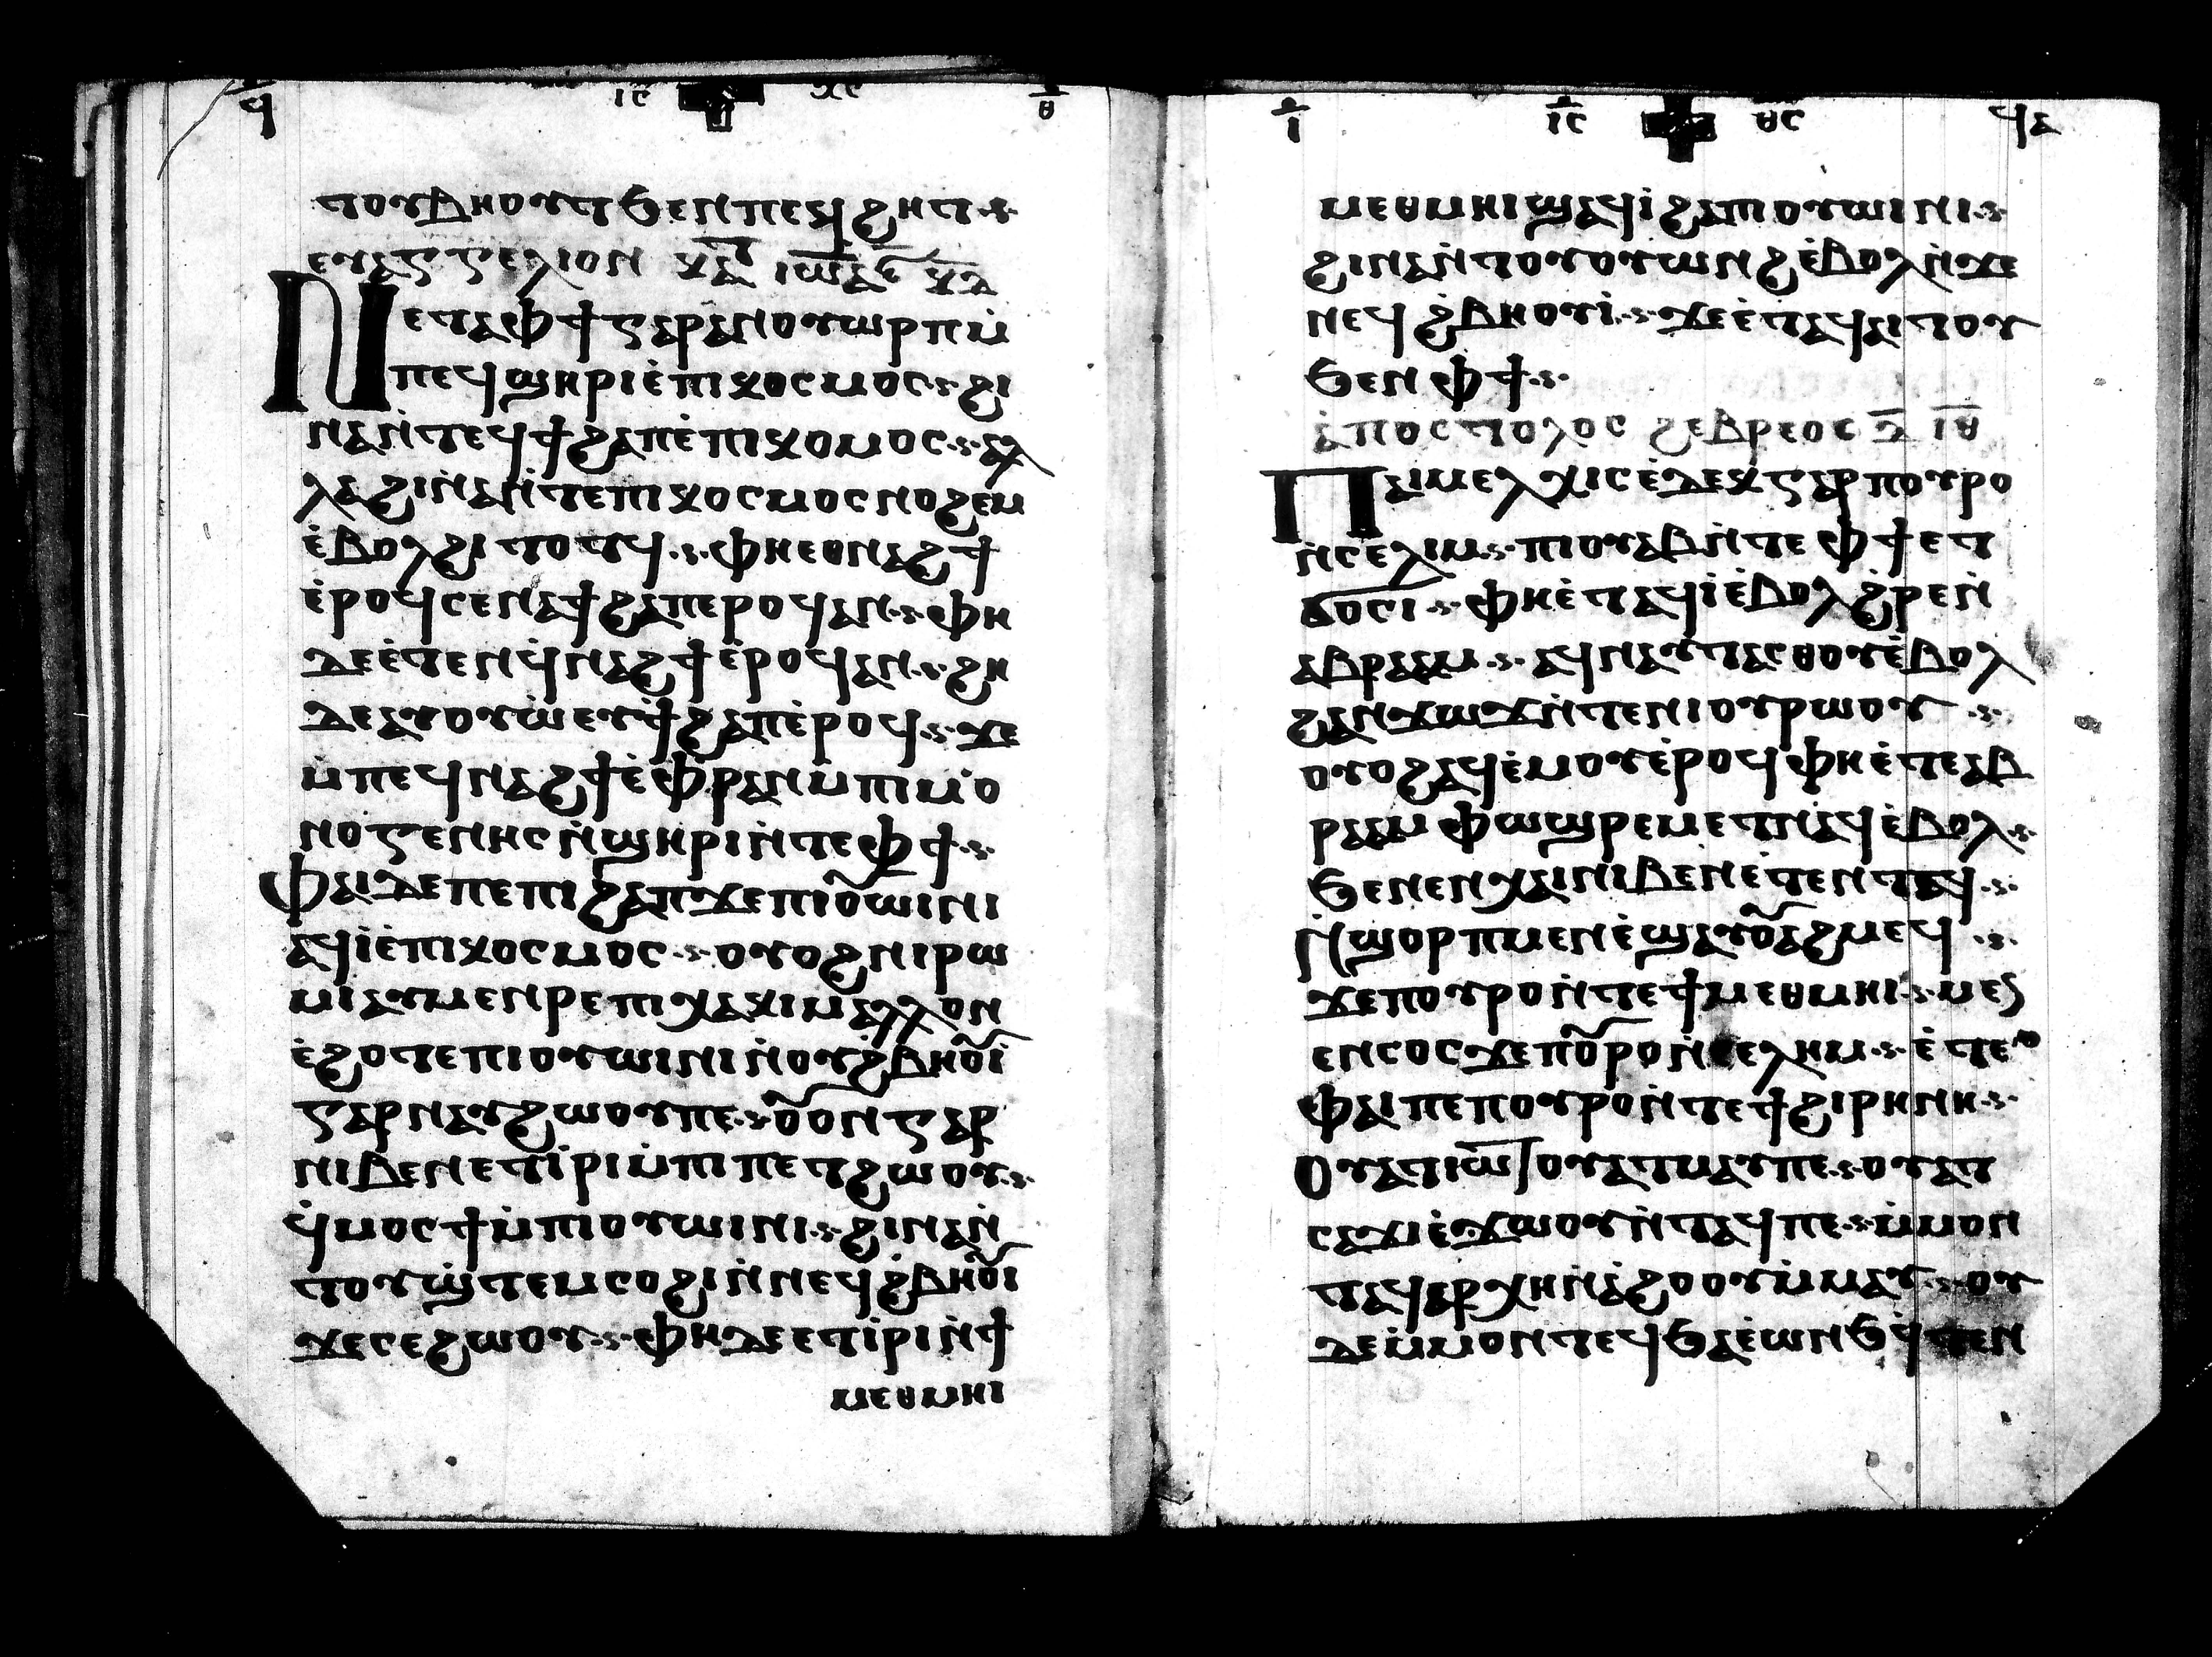 ϥ ⲓⲥ ⲭⲥ ⲑ
ⲧⲟⲩⲃⲏⲟⲩⲧ ϧⲉⲛ ⲡⲉϥϩⲏⲧ
ⲉⲩⲁⲅⲅⲉⲗⲓⲟⲛ ⲕⲁ ⲓⲱⲁ
ⲛⲉⲧⲁ ⲫϯ ⲅⲁⲣ ⲁⲛ ⲟⲩⲱⲣⲡ ⲙ̇
ⲡⲉϥϣⲏⲣⲓ ⲉ̇ⲡⲓⲕⲟⲥⲙⲟⲥ ϩⲓ
ⲛⲁ ⲛ̇ⲧⲉϥϯϩⲁⲡ ⲉ̇ⲡⲓⲕⲟⲙⲟⲥ ⲁⲗ
ⲗⲁ ϩⲓⲛ̇ⲁ ⲛ̇ⲧⲉ ⲡⲓⲕⲟⲥⲙⲟⲥ ⲛⲟϩⲉⲙ
ⲉ̇ⲃⲟⲗ ϩⲓⲧⲟⲧϥ ⲫⲏⲉⲑⲛⲁϩϯ
ⲉ̇ⲣⲟϥ ⲥⲉⲛⲁϯϩⲁⲡ ⲉⲣⲟϥ ⲁⲛ ⲫⲏ
ⲇⲉ ⲉ̇ⲧⲉⲛϥ̇ⲛⲁϩϯ ⲉ̇ⲣⲟϥ ⲁⲛ ϩⲏ
ⲇⲉ ⲁⲩⲟⲩⲱ̇ ⲉⲩϯϩⲁⲡ ⲉ̇ⲣⲟϥ ϫⲉ
ⲙ̇ⲡⲉϥⲛⲁϩϯ ⲉ̇ⲫⲣⲁⲛ ⲙ̇ⲡⲓⲙⲟ
ⲛⲟⲅⲉⲛⲏⲥ ⲛ̇ϣⲏⲣⲓ ⲛ̇ⲧⲉ ⲫϯ
ⲫⲁⲓ ⲇⲉ ⲡⲉ ⲡⲓϩⲁⲡ ϫⲉ ⲡⲓⲟ̅ⲱⲓⲛⲓ
ⲁϥⲓ̇ ⲉ̇ⲡⲓⲕⲟⲥⲙⲟⲥ ⲟⲩⲟϩ ⲛⲓⲣⲱ
ⲙⲓ ⲁⲩⲙⲉⲛⲣⲉ ⲡⲓⲭⲁⲕⲓ ⲙⲁⲗⲗⲟⲛ
ⲉ̇ϩⲟⲧⲉ ⲡⲓⲟⲩⲱⲓⲛⲓ ⲛ̇ⲟⲩϩ̇ⲃⲏⲟ̅ⲓ̇
ⲅⲁⲣ ⲛⲁⲩϩⲱⲟⲩ ⲡⲉ ⲟ̅ⲟⲛ ⲅⲁⲣ
ⲛⲓⲃⲉⲛ ⲉⲧⲓ̇ⲣⲓ ⲙ̇ⲡⲓ ⲡⲉⲧϩⲱⲟⲩ
ϥ̇ⲙⲟⲥϯ ⲙ̇ⲡⲓⲟⲩⲱⲓⲛⲓ ϩⲓⲛⲁ ⲛ̇
ⲧⲟⲩϣ̇ⲧⲉⲙⲥⲟϩⲓ ⲛ̇ⲛⲉϥϩ̇ⲃⲏⲟ̅ⲓ
ϫⲉ ⲥⲉϩⲱⲟⲩ ⲫⲏ ⲇⲉ ⲉⲧⲓ̇ⲣⲓ ⲛ̇ϯ
ⲙⲉⲑⲙⲏⲓ
ⲓ ⲓⲥ ⲑⲥ ϥⲁ
ⲙⲉⲑⲙⲏⲓ ϣⲁϥⲓ̇ ϩⲁ ⲡⲓⲟⲩⲱⲓⲛⲓ
ϩⲓⲛⲁ ⲛ̇ⲧⲟⲩⲟⲩⲱⲛϩ ⲉ̇ⲃⲟⲗ ⲛ̇ϫⲉ
ⲛⲉϥϩ̇ⲃⲏⲟⲩⲓ̇ ϫⲉ ⲉ̇ⲧⲁϥⲁⲓⲧⲟⲩ
ϧⲉⲛ ⲫϯ
ⲁ̇ⲡⲟⲥⲧⲟⲗⲟⲥ ϩⲉⲃⲣⲉⲟⲥ ⲁ̅ ⲓⲑ
ⲡⲁⲓⲙⲉⲗⲭⲓⲥⲉ̇ⲇⲉⲕ ⲅⲁⲣ ⲡⲟⲩⲣⲟ
ⲛ̇ⲥⲉⲗⲓⲙ ⲡⲓⲟⲩⲁⲃ ⲛ̇ⲧⲉ ⲫϯ ⲉⲧ
ϭⲟⲥⲓ ⲫⲏⲉ̇ⲧⲁϥⲓ̇ ⲉ̇ⲃⲟⲗ ϩ̇ⲣⲉⲛ̇
ⲁⲃⲣⲁⲁⲙ ⲁϥⲛⲁⲩⲧⲁⲥⲑⲟⲩ ⲉ̇ⲃⲟⲗ
ϩⲁⲛϫⲱϫ ⲛ̇ⲧⲉ ⲛⲓⲟⲩⲣⲱⲟⲩ
ⲟⲩⲟϩ ⲁϥⲉ̇ⲙⲟⲩ ⲉ̇ⲣⲟϥ ⲫⲏⲉ̇ⲧⲉ ⲁⲃ
ⲣⲁⲁⲙ ⲫⲱϣ ⲣⲉⲙⲉⲧ ⲛⲁ̇ϥ ⲉ̇ⲃⲟⲗ
ϧⲉⲛ ⲉⲛⲭⲁⲓ ⲛⲓⲃⲉⲛ ⲉ̇ⲧⲉⲛⲧⲁϥ
ⲛ̇ϣⲟⲣⲡ ⲙⲉⲛ ⲉ̇ϣⲁⲩⲟ̅ⲁϩⲙⲉϥ
ϫⲉ ⲡⲟⲩⲣⲟ ⲛ̇ⲧⲉ ϯⲙⲉⲑⲙⲏⲓ ⲙⲉϩ
ⲉⲛⲥⲟⲥ ϫⲉ ⲡⲟ̅ⲣⲟ ⲛ̇ⲥⲉⲗⲏⲙ ⲉ̇ⲧⲉ
ⲫⲁⲓ ⲡⲉ ⲡⲟⲩⲣⲟ ⲛ̇ⲧⲉ ϯϩⲓⲣⲏⲛⲏ
ⲟⲩⲁⲧⲓⲱⲧ ⲟⲩⲁⲧⲙⲁⲩ ⲡⲉ ⲟⲩⲁⲧ
ⲥⲁϫⲓ ⲉ̇ϫⲱⲟⲩ ⲛ̇ⲧⲁϥ ⲡⲉ ⲙ̇ⲙⲟⲛ
ⲧⲁϥⲁⲣⲭⲏ ⲛ̇ⲁ̇ϩⲟⲟⲩ ⲙ̇ⲙⲁⲩ ⲟⲩ
ⲇⲉ ⲙ̇ⲙⲟⲛⲧⲉϥ ϧⲁⲉ̇ ⲱⲛϧ ϥ̇ⲧⲉⲛ